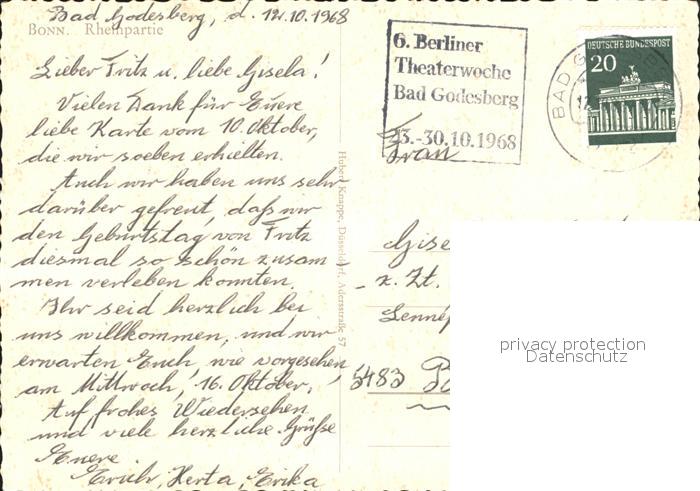 Bad Godesberg, d. 12.10.1968
BONN. Rheinpartie
Lieber Fritz u. liebe Gisela!
Vielen Dank für Euere
liebe Karte vom 10. Oktober,
die wir soeben erhielten.
Auch wir haben uns sehr
darüber gefreut, daß wir
den Geburtstag von Fritz
diesmal so schön zusam
men verleben konnten.
Ihr seid herzlich bei
uns willkommen, und wir
erwarten Euch, wie vorgesehen
am Mittwoch, 16. Oktober.
Auf frohes Wiedersehen
und viele herzliche Grüße
Euere
Erich, Herta, Erika
Hubert Knappe, Düsseldorf, Adersstraße 57
6. Berliner
Theaterwoche
Bad Godesberg
23.-30.10.1968
DEUTSCHE BUNDESPOST
20
BAD G
Frau
Gise
z. Zt.
5483
privacy protection
Datenschutz